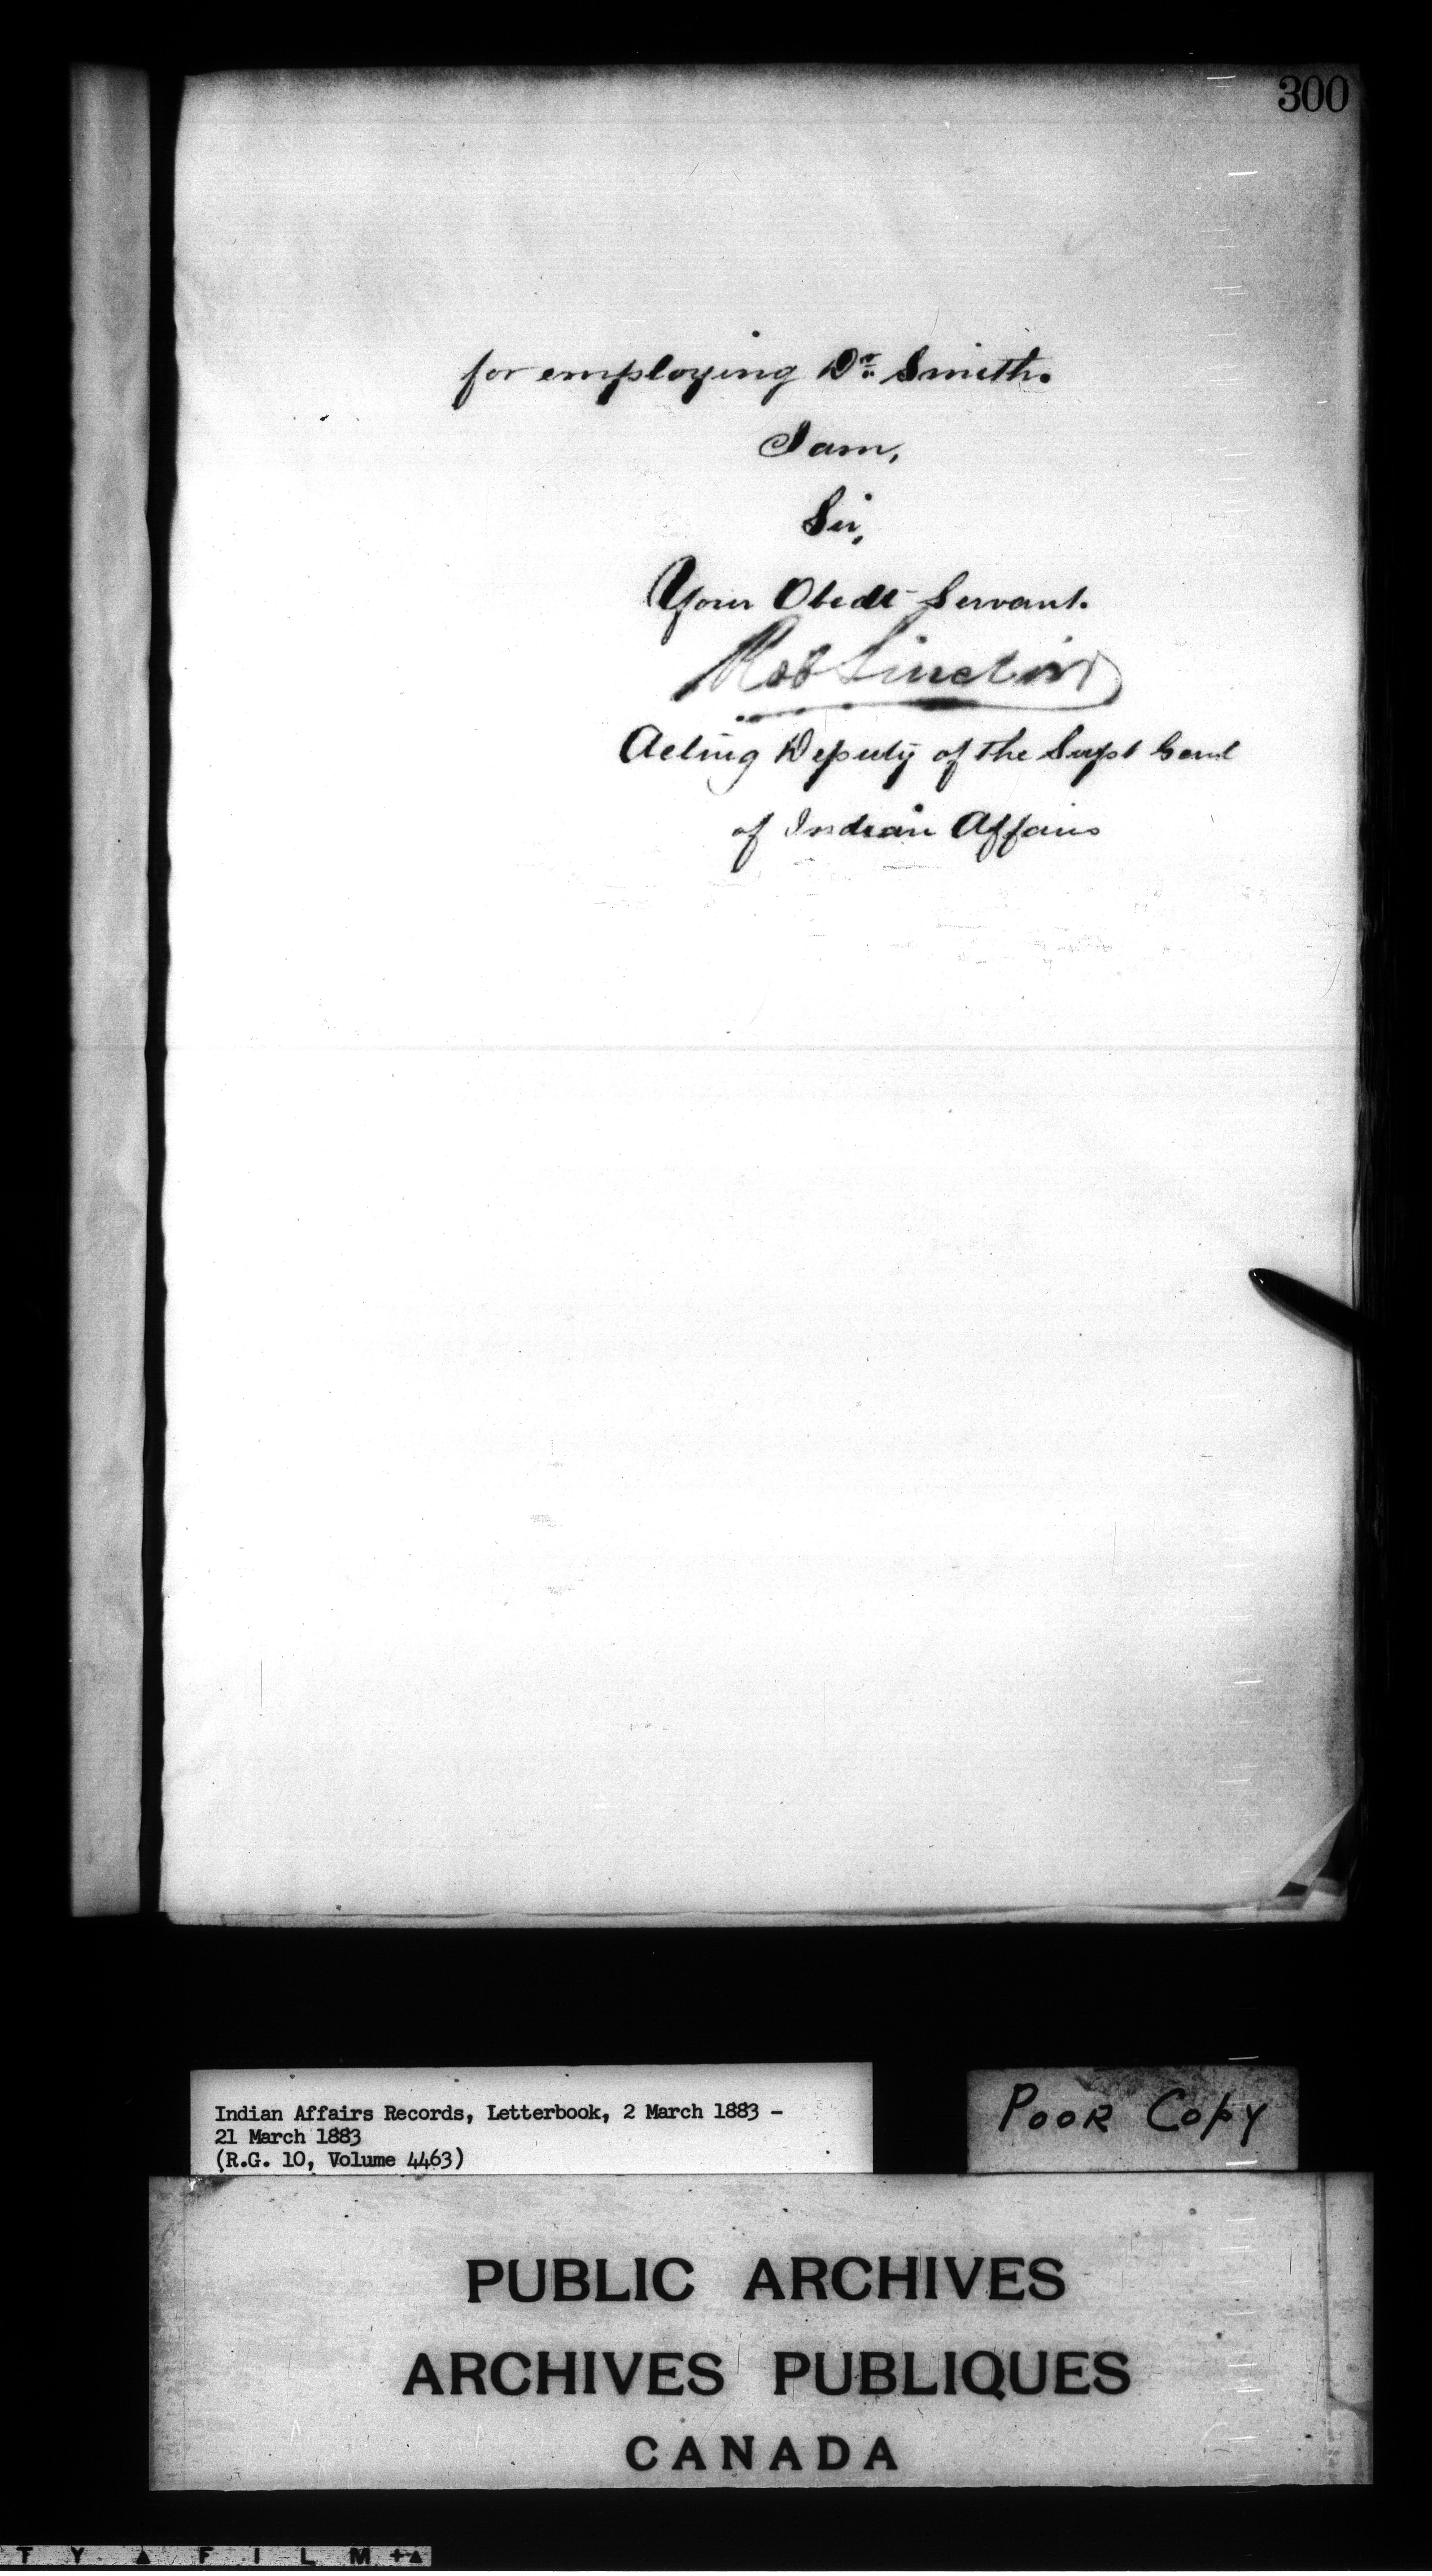 300
for employing Dr. Smith.
I am,
Sir,
Your Obedt Servant.
Rob Sinclair
Acting Deputy of the Supt Genl
of Indian Affairs
Indian Affairs Records, Letterbook, 2 March 1883 -
21 March 1883
(R.G. 10, Volume 4463)
POOR COPY
PUBLIC ARCHIVES
ARCHIVES PUBLIQUES
CANADA
T Y ▲ F I L M +▲